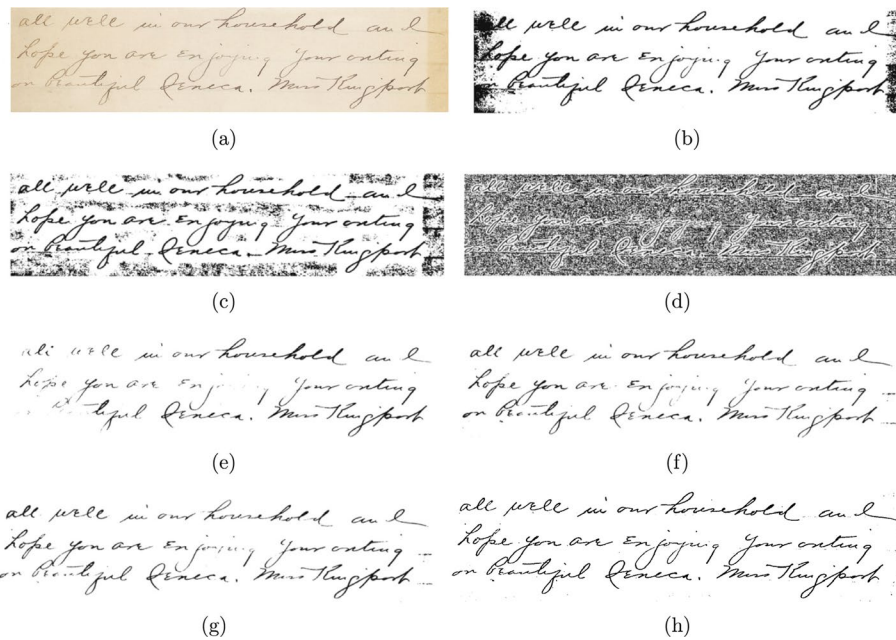 all well in our household and
hope you are enjoying your outing
on beautiful Seneca. Miss Kingport
(a)
all well in our household and
hope you are enjoying your outing
on beautiful Seneca. Miss Kingport
(b)
all well in our household and
hope you are enjoying your outing
on beautiful Seneca. Miss Kingport
(c)
all well in our household and
hope you are enjoying your outing
on beautiful Seneca. Miss Kingport
(d)
all well in our household and
hope you are your outing
Seneca. Miss Kingport
(e)
all well in our household and
hope you are enjoying your outing
on beautiful Seneca. Miss Kingport
(f)
all well in our household and
hope you are enjoying your outing
on beautiful Seneca. Miss Kingport
(g)
all well in our household and
hope you are enjoying your outing
on beautiful Seneca. Miss Kingport
(h)